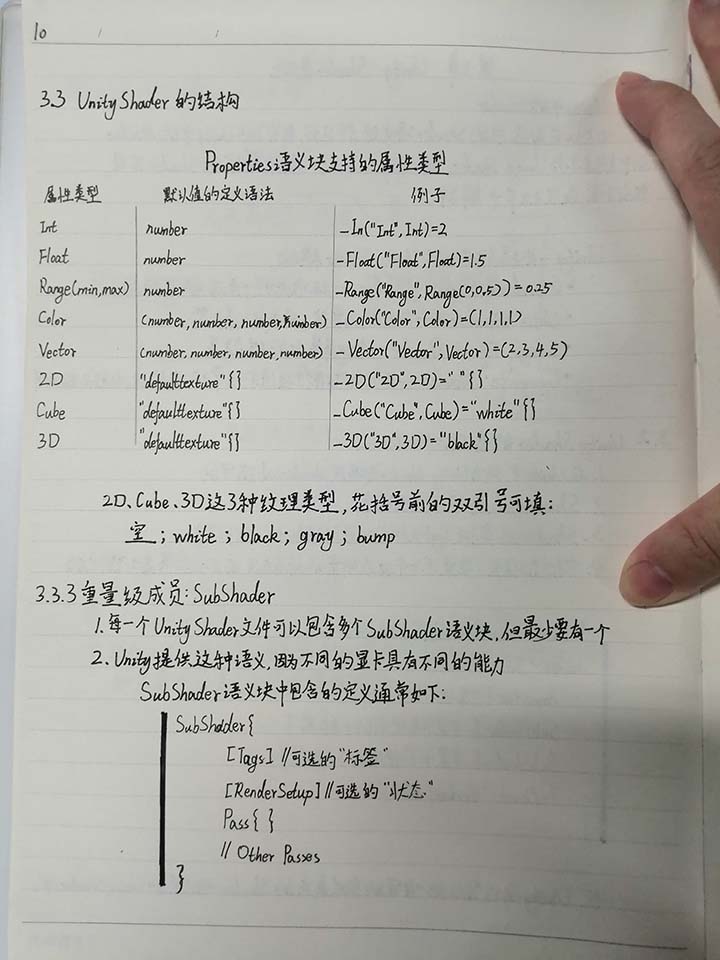 10
3.3 UnityShader的结构
Properties语义块支持的属性类型
属性类型 默认值的定义语法 例子
Int number _In("Int",Int)=2
Float number _Float("Float",Float)=1.5
Range(min,max) number _Range("Range",Range(0,0,5))=0.25
Color (number,number,number,number) _Color("Color",Color)=(1,1,1,1)
Vector (number,number,number,number) _Vector("Vector",Vector)=(2,3,4,5)
2D "defaulttexture"{} _2D("2D",2D)=" "{}
Cube "defaulttexture"{} _Cube("Cube",Cube)="white"{}
3D "defaulttexture"{} _3D("3D",3D)="black"{}
2D、Cube、3D这3种纹理类型,花括号前的双引号可填:
空;white;black;gray;bump
3.3.3重量级成员:SubShader
1.每一个UnityShader文件可以包含多个SubShader语义块,但最少要有一个
2.Unity提供这种语义,因为不同的显卡具有不同的能力
SubShader语义块中包含的定义通常如下:
SubShader{
[Tags] //可选的"标签"
[RenderSetup] //可选的"状态"
Pass{ }
// Other Passes
}